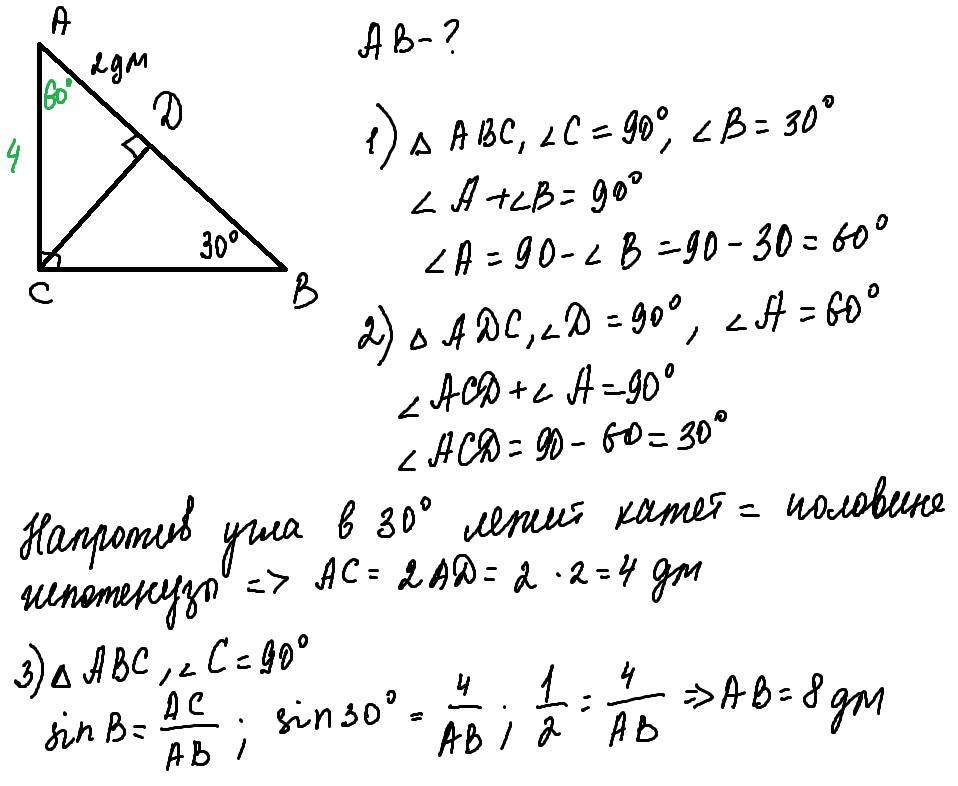 A
2дм
60°
D
4
30°
C
B
AB - ?
1) △ ABC, ∠C = 90°, ∠B = 30°
∠A + ∠B = 90°
∠A = 90 - ∠B = 90 - 30 = 60°
2) △ ADC, ∠D = 90°, ∠A = 60°
∠ACD + ∠A = 90°
∠ACD = 90 - 60 = 30°
Напротив угла в 30° лежит катет = половине
гипотенузы => AC = 2AD = 2 · 2 = 4 дм
3) △ ABC, ∠C = 90°
sin B = AC/AB ; sin 30° = 4/AB ; 1/2 = 4/AB => AB = 8 дм